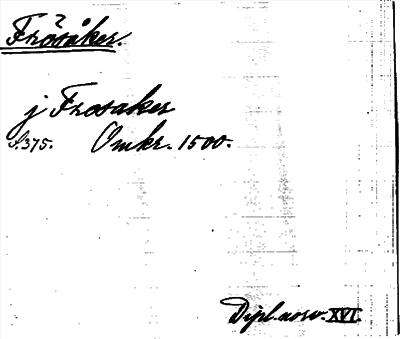 Frösåker.
j Frosaker
S. 375. Omkr. 1500.
Dipl. norv. XVI.